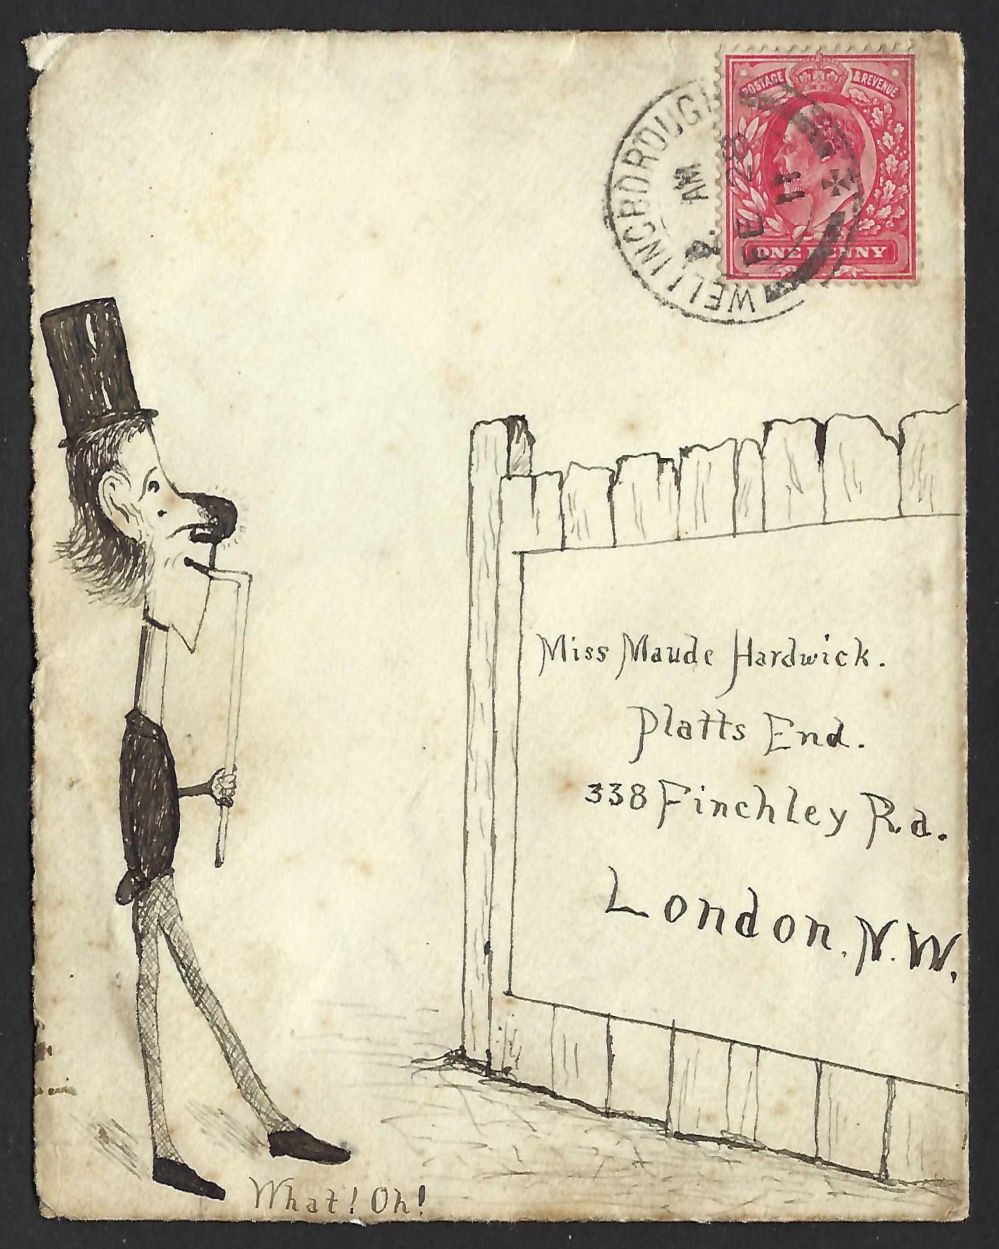 POSTAGE & REVENUE
ONE PENNY
WELLINGBOROUGH
AM
28
FE
11
Miss Maude Hardwick.
Platts End.
338 Finchley Rd.
London. N.W.
What! Oh!